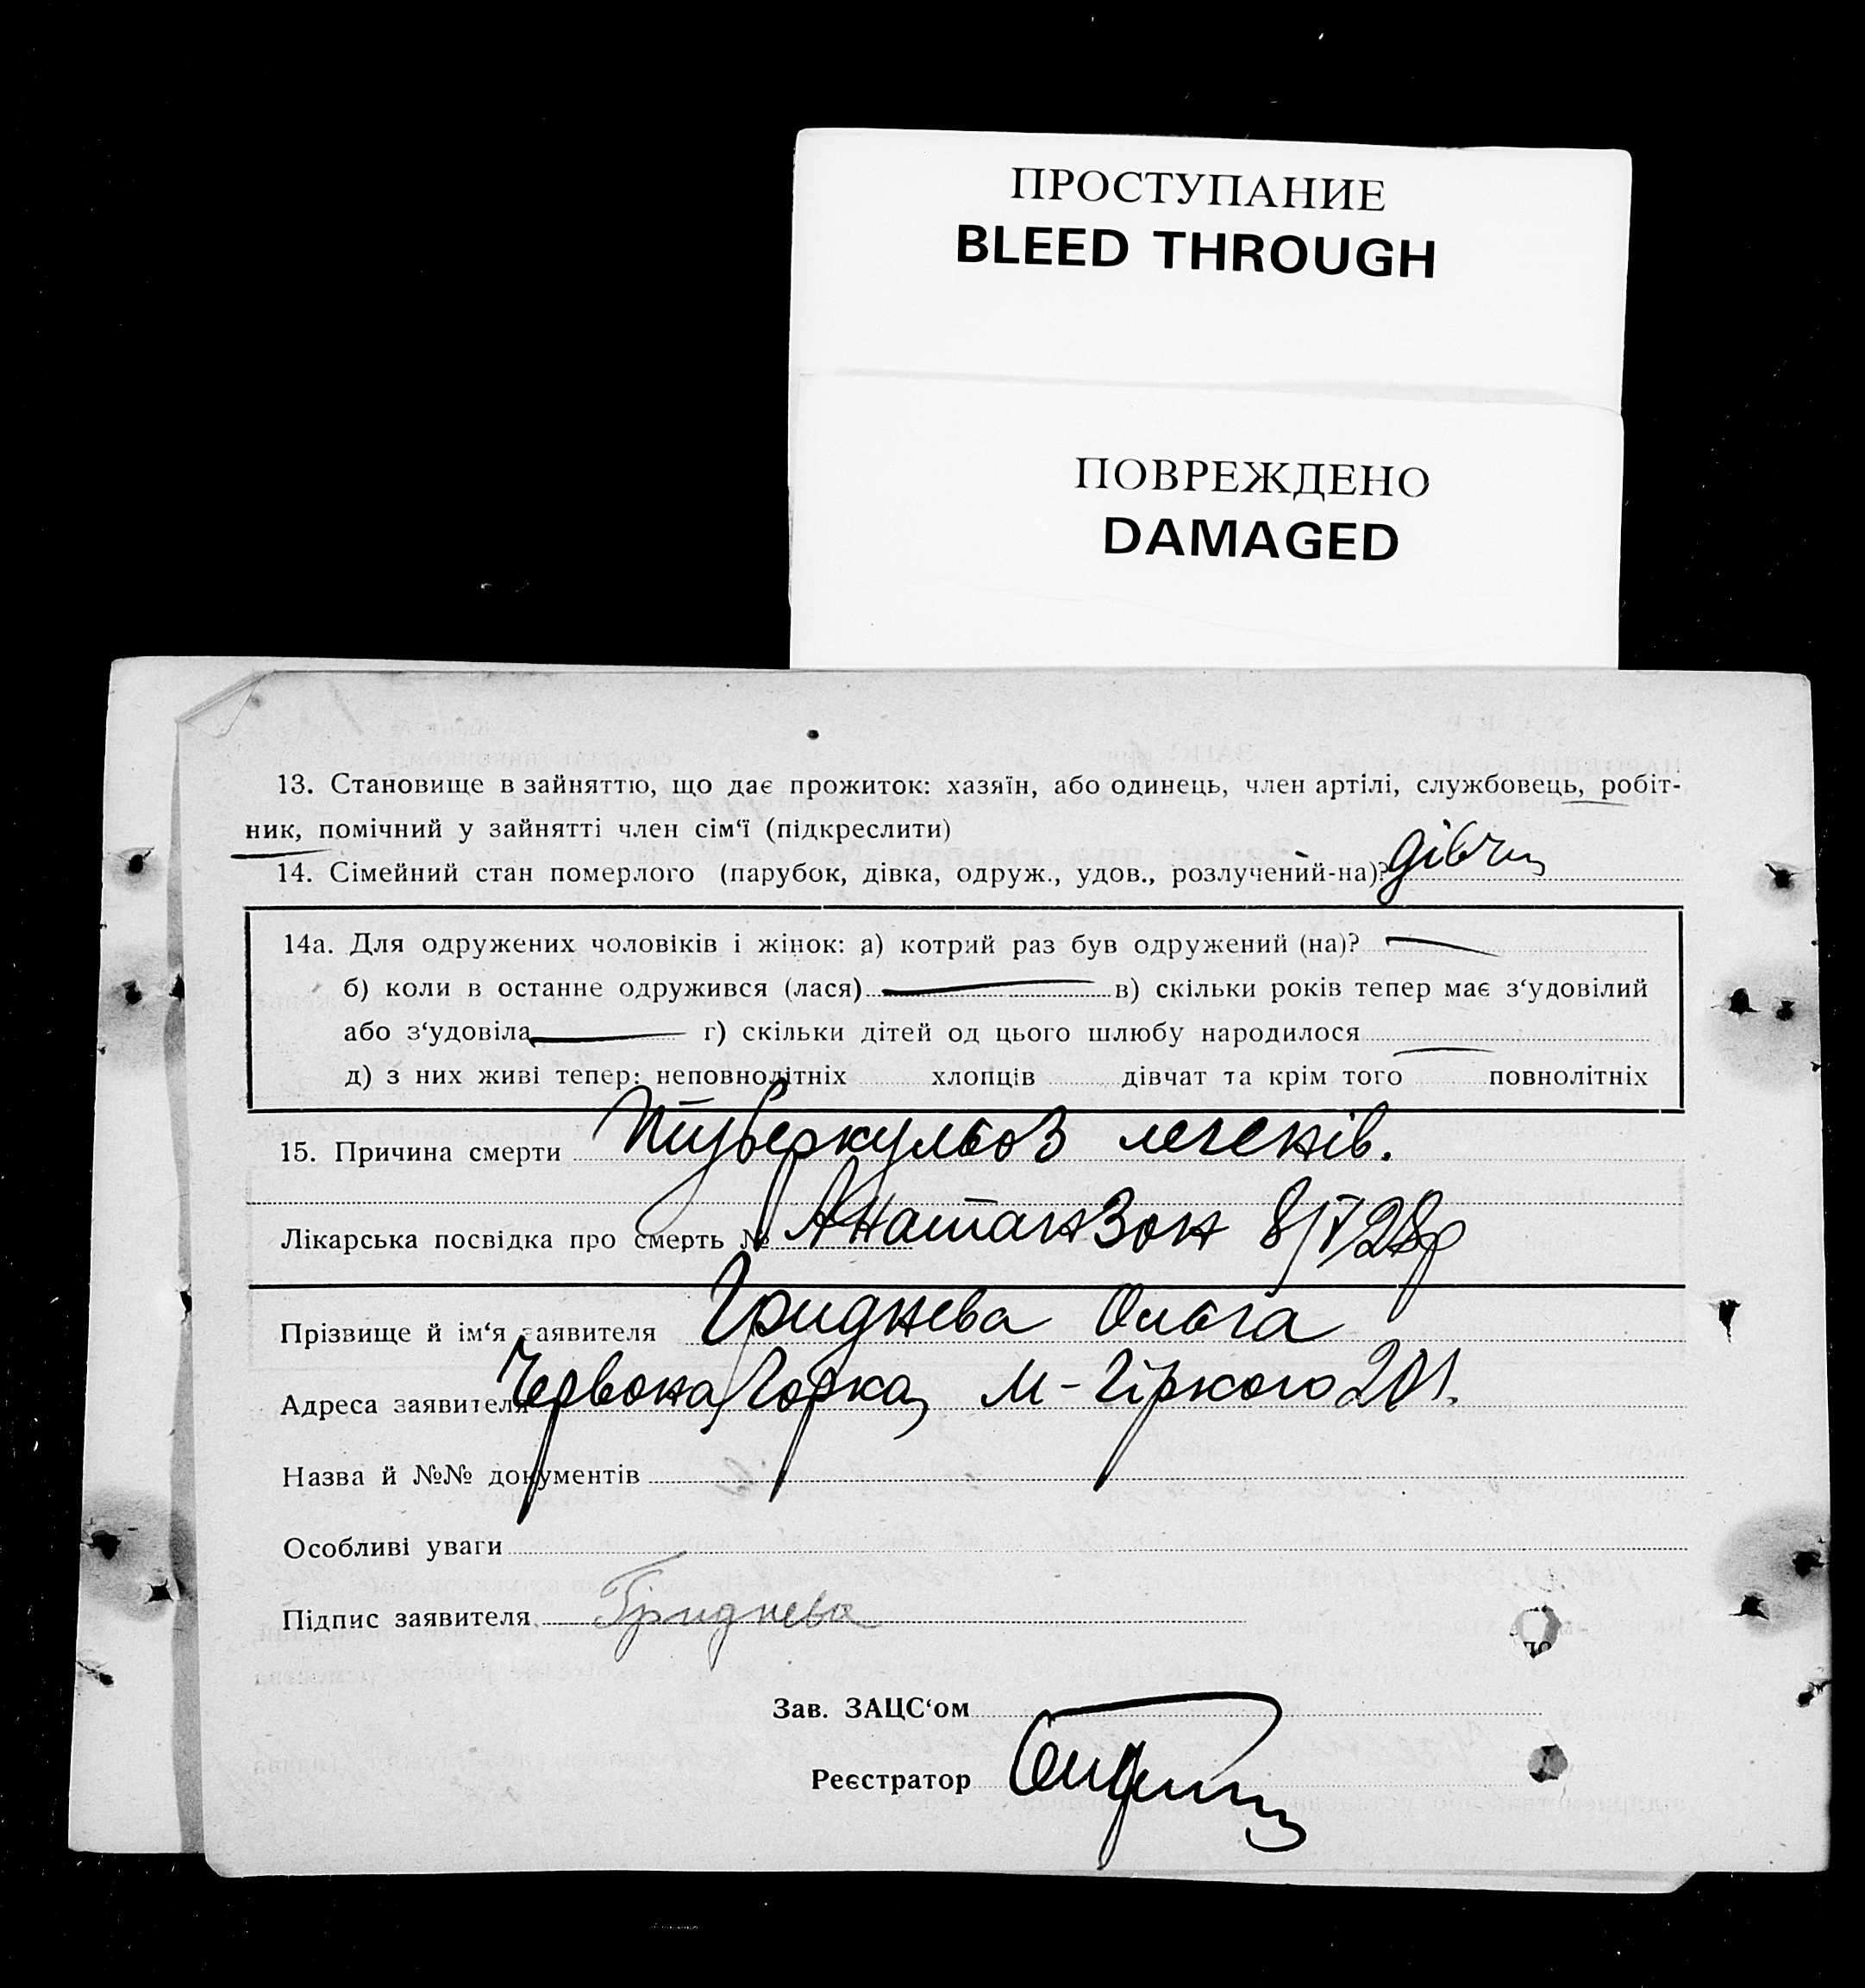 ПРОСТУПАНИЕ
BLEED THROUGH
ПОВРЕЖДЕНО
DAMAGED
13. Становище в зайняттю, що дає прожиток: хазяїн, або одинець, член артілі, службовець, робіт-
ник, помічний у зайнятті член сім‘ї (підкреслити)
14. Сімейний стан померлого (парубок, дівка, одруж., удов., розлучений-на)?
14а. Для одружених чоловіків і жінок: а) котрий раз був одружений (на)?
б) коли в останне одружився (лася) в) скільки років тепер має з‘удовілий
або з‘удовіла г) скільки дітей од цього шлюбу народилося
д) з них живі тепер: неповнолітніх хлопців дівчат та крім того повнолітніх
15. Причина смерти Туберкульоз легенів.
Лікарська посвідка про смерть № Натанзон 8/V 28р
Прізвище й ім‘я заявителя Гриднева Ольга
Адреса заявителя Червона Горка, М-Гіркого 201.
Назва й №№ документів
Особливі уваги
Підпис заявителя Гриднева
Зав. ЗАЦС‘ом
Реєстратор